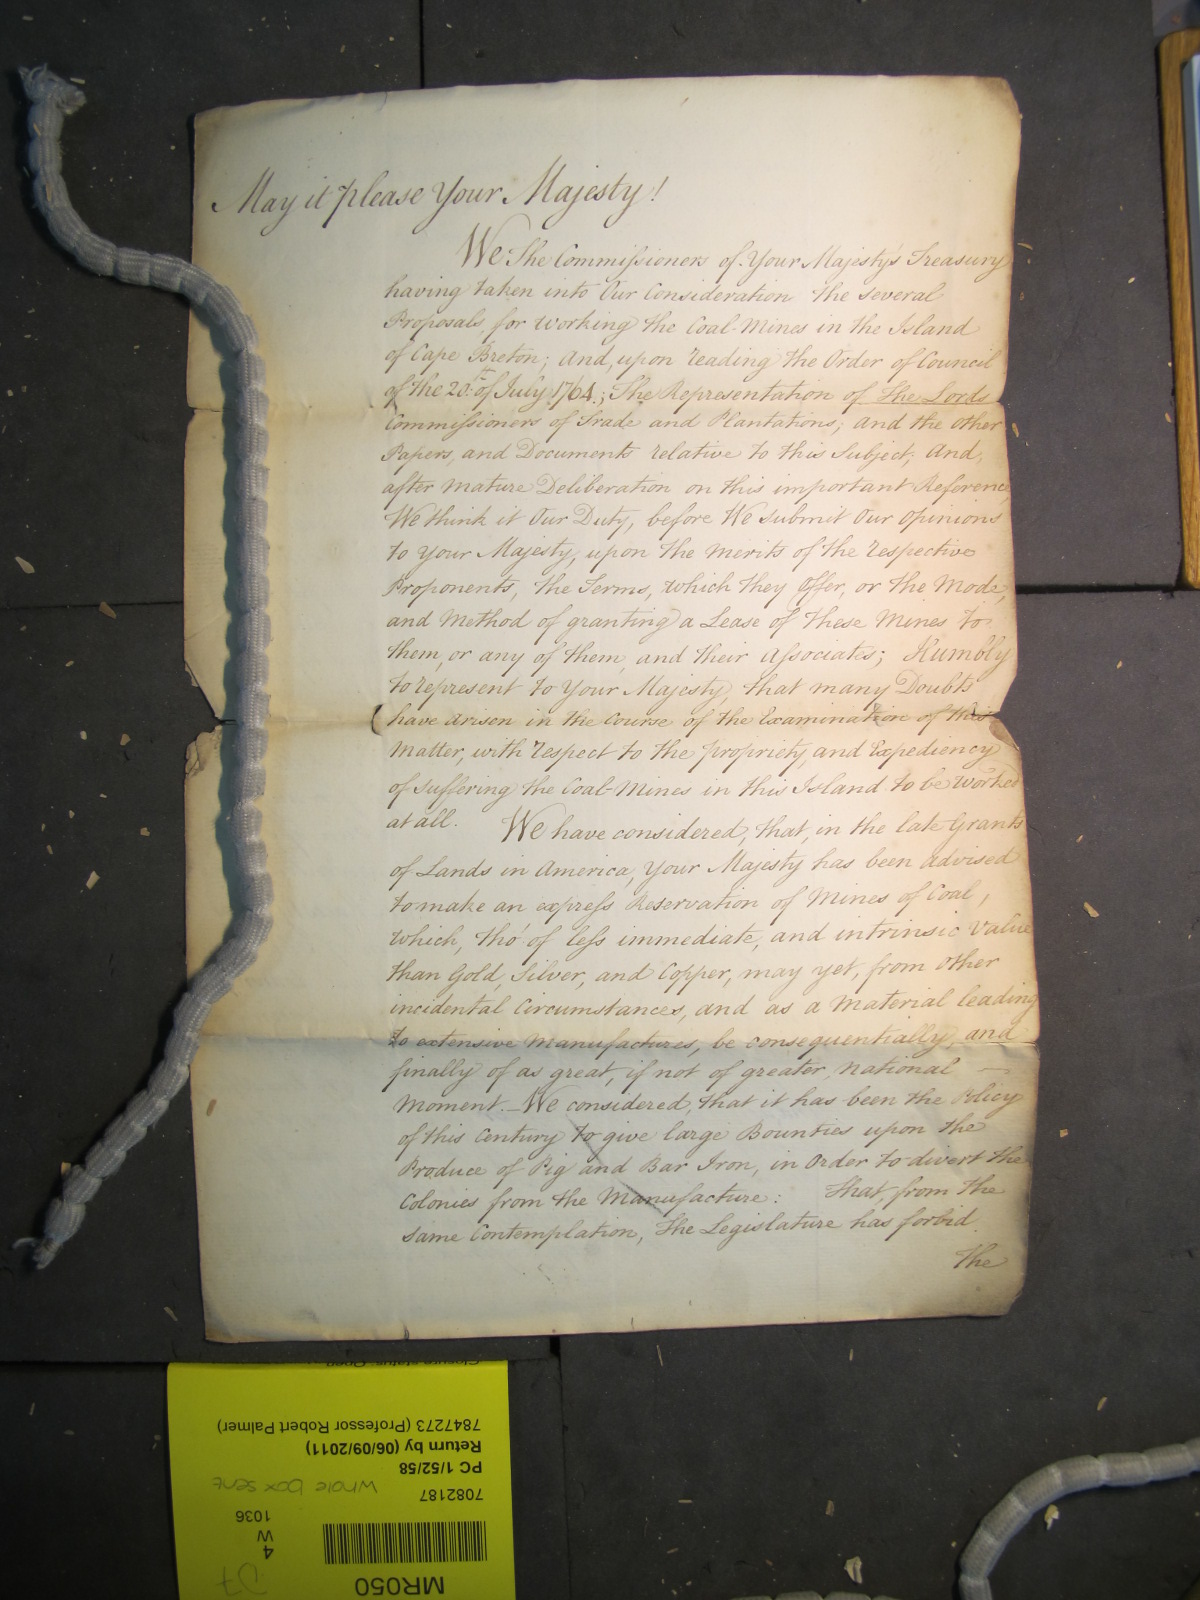 May it please Your Majesty!
We The Commissioners of Your Majesty's Treasury
having taken into Our Consideration the several
Proposals, for working the Coal-Mines in the Island
of Cape Breton; And, upon reading the Order of Council
of the 20th of July 1764; The Representation of the Lords
Commissioners of Trade and Plantations; and the other
Papers, and Documents relative to this Subject; And,
after mature Deliberation on this important Reference,
We think it Our Duty, before We submit Our Opinions
to Your Majesty, upon the merits of the respective
Proponents, the Terms, which they Offer, or the Mode,
and Method of granting a Lease of these Mines to
them, or any of them, and their Associates; Humbly
to represent to Your Majesty, that many Doubts
have arisen in the Course of the Examination of this
Matter, with respect to the propriety, and Expediency
of suffering the Coal-Mines in this Island to be worked
at all. We have considered, that, in the late Grants
of Lands in America, Your Majesty has been advised
to make an express Reservation of Mines of Coal,
which, tho' of less immediate, and intrinsic Value
than Gold, Silver, and Copper, may yet, from other
incidental Circumstances, and as a Material leading
to extensive Manufactures, be consequentially, and
finally of as great, if not of greater, national
Moment. We considered, that it has been the Policy
of this Century to give large Bounties upon the
Produce of Pig and Bar Iron, in Order to divert the
Colonies from the Manufacture: That, from the
same Contemplation, the Legislature has forbid
the
MR050
D7
4
W
1036
7082187
Whole box sent
PC 1/52/58
Return by (06/09/2011)
7847273 (Professor Robert Palmer)
Closure status: Open